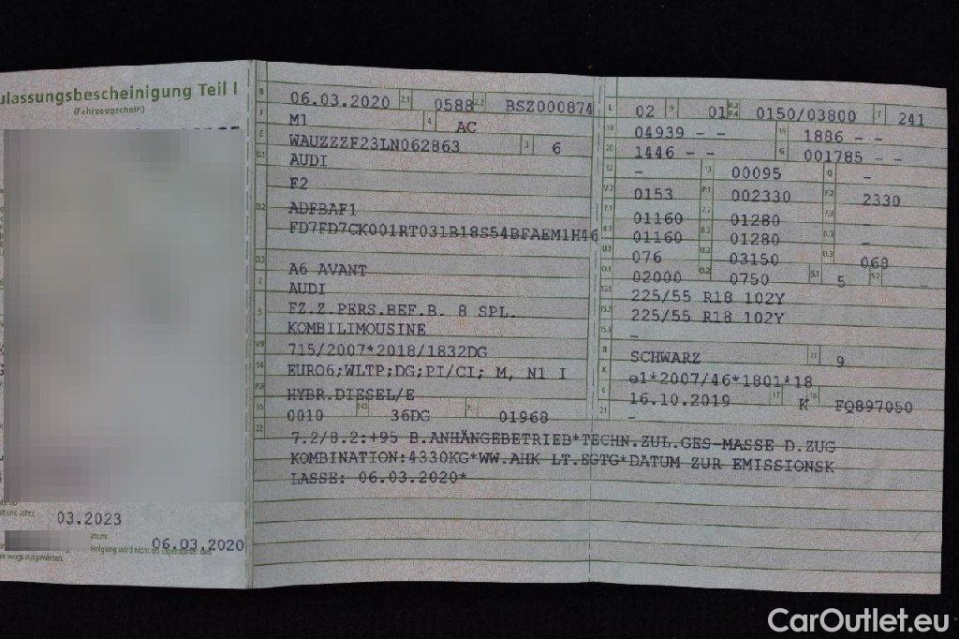 ulassungsbescheinigung Teil I
(Fahrzeugschein)
03.2023
06.03.2020
B 06.03.2020 2.1 0588 2.2 BSZ000874
J M1 4 AC
E WAUZZZF23LN062863 3 6
D.1 AUDI
F2
D.2 ADFBAF1
FD7FD7CK001RT031B18S54BFAEM1H46
D.3 A6 AVANT
2 AUDI
5 FZ.Z.PERS.BEF.B. 8 SPL.
KOMBILIMOUSINE
V.9 715/2007*2018/1832DG
14 EURO6;WLTP;DG;PI/CI; M, N1 I
P.3 HYBR.DIESEL/E
10 0010 14.1 36DG P.1 01968
22 7.2/8.2:+95 B.ANHÄNGEBETRIEB*TECHN.ZUL.GES-MASSE D.ZUG
KOMBINATION:4330KG*WW.AHK LT.EGTG*DATUM ZUR EMISSIONSK
LASSE: 06.03.2020*
L 02 9 01 P.2 P.4 0150/03800 T 241
18 04939 - - 19 1886 - -
20 1446 - - G 001785 - -
12 - 13 00095 Q -
V.7 0153 F.1 002330 F.2 2330
7.1 01160 7.2 01280 7.3 -
8.1 01160 8.2 01280 8.3 -
U.1 076 U.2 03150 U.3 068
O.1 02000 O.2 0750 S.1 5 S.2 -
15.1 225/55 R18 102Y
15.2 225/55 R18 102Y
15.3 -
R SCHWARZ 11 9
K e1*2007/46*1801*18
6 16.10.2019 17 K 16 FQ897050
21 -
CarOutlet.eu